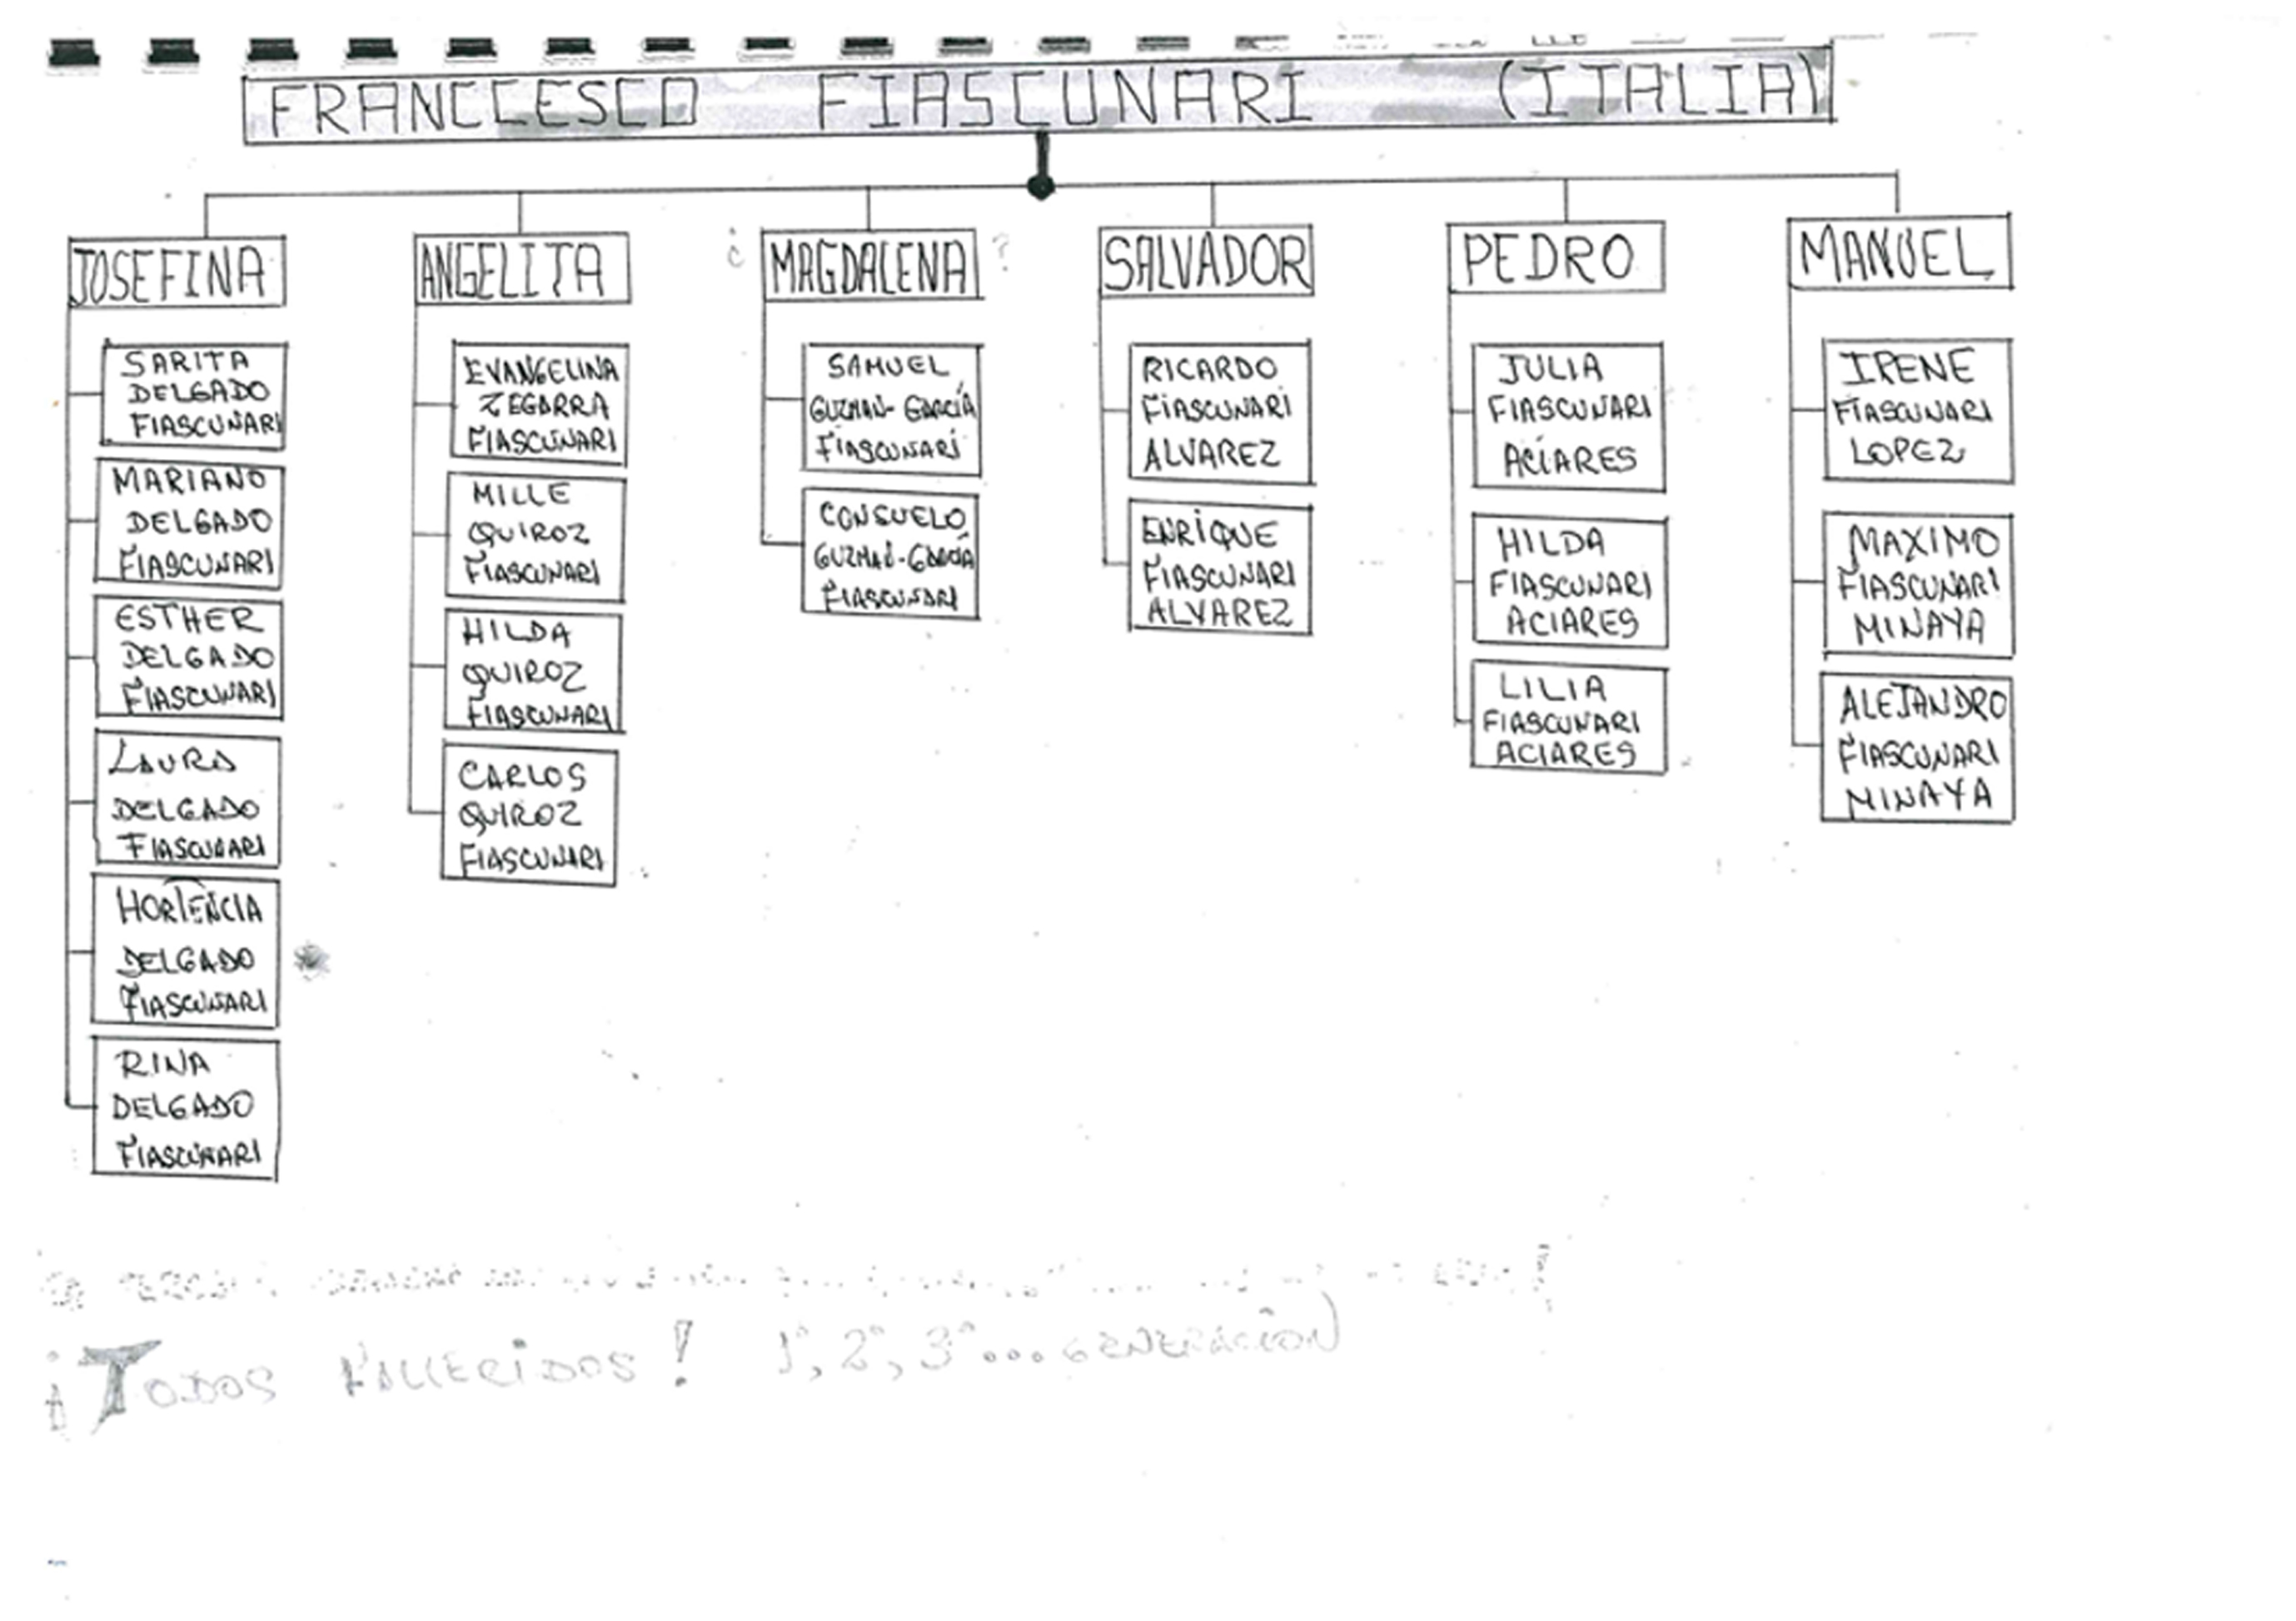 FRANCCESCO FIASCUNARI (ITALIA)
JOSEFINA
SARITA
DELGADO
FIASCUNARI
MARIANO
DELGADO
FIASCUNARI
ESTHER
DELGADO
FIASCUNARI
LAURA
DELGADO
FIASCUNARI
HORTENCIA
DELGADO
FIASCUNARI
RINA
DELGADO
FIASCUNARI
ANGELITA
EVANGELINA
ZEGARRA
FIASCUNARI
MILLE
QUIROZ
FIASCUNARI
HILDA
QUIROZ
FIASCUNARI
CARLOS
QUIROZ
FIASCUNARI
¿ MAGDALENA ?
SAMUEL
GUZMAN-GARCÍA
FIASCUNARI
CONSUELO
GUZMAN-GARCÍA
FIASCUNARI
SALVADOR
RICARDO
FIASCUNARI
ALVAREZ
ENRIQUE
FIASCUNARI
ALVAREZ
PEDRO
JULIA
FIASCUNARI
ACIARES
HILDA
FIASCUNARI
ACIARES
LILIA
FIASCUNARI
ACIARES
MANUEL
IRENE
FIASCUNARI
LOPEZ
MAXIMO
FIASCUNARI
MINAYA
ALEJANDRO
FIASCUNARI
MINAYA
¡TODOS FALLECIDOS! 1°, 2°, 3°...GENERACIÓN)